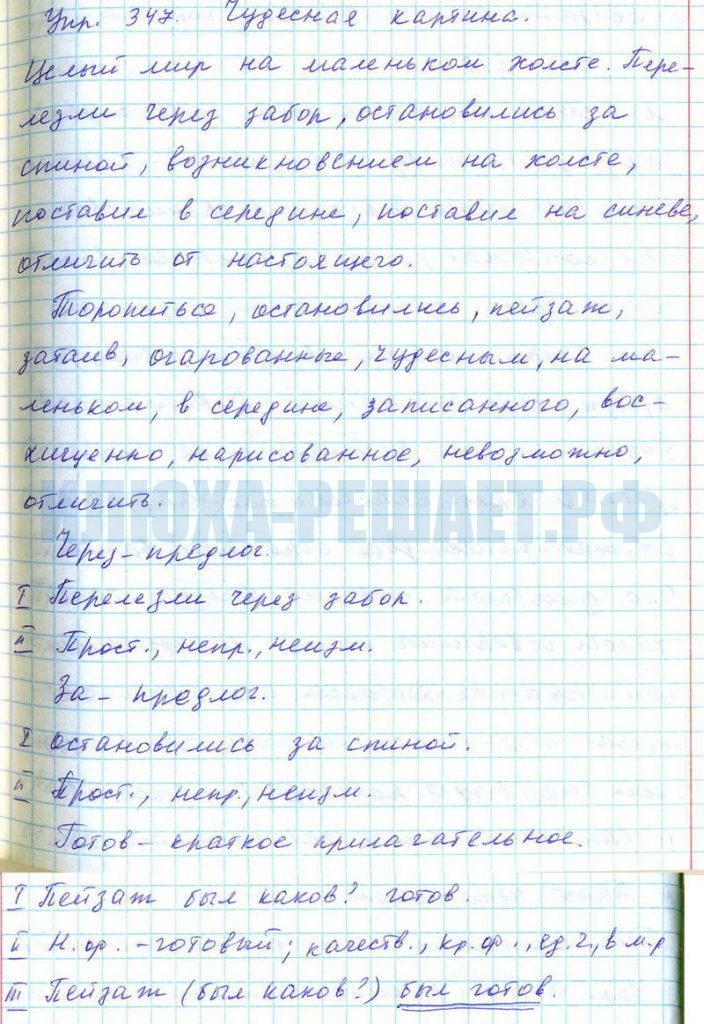 Упр. 347. Чудесная картина.
Целый мир на маленьком холсте. Пере-
лезли через забор, остановились за
спиной, возникновением на холсте,
поставил в середине, поставил на синеве,
отличить от настоящего.
Торопиться, остановились, пейзаж,
затаив, очарованные, чудесным, на ма-
леньком, в середине, записанного, вос-
хищенно, нарисованное, невозможно,
отличить.
ИЛЮХА-РЕШАЕТ.РФ
Через - предлог.
I Перелезли через забор.
II Прост., непр., неизм.
За - предлог.
I Остановились за спиной.
II Прост., непр., неизм.
Готов - краткое прилагательное.
I Пейзаж был каков? готов.
II Н.ф. - готовый; качеств., кр.ф., ед.ч., в м.р
III Пейзаж (был каков?) был готов.